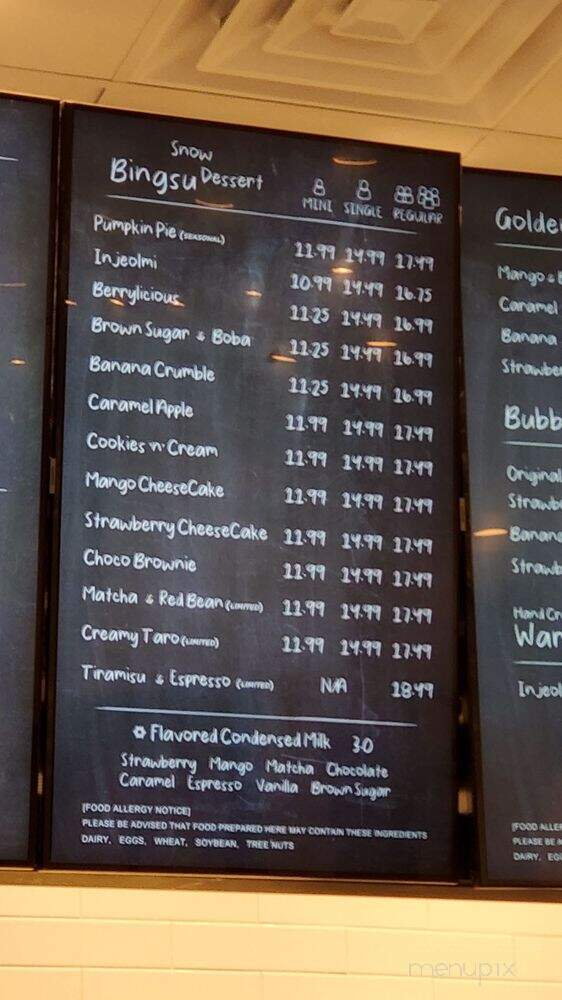 Snow
Bingsu Dessert
MINI SINGLE REGULAR
Pumpkin Pie (SEASONAL) 11.99 14.99 17.49
Injeolmi 10.99 14.49 16.75
Berrylicious 11.25 14.49 16.99
Brown Sugar & Boba 11.25 14.49 16.99
Banana Crumble 11.25 14.49 16.99
Caramel Apple 11.99 14.99 17.49
Cookies 'n' Cream 11.99 14.99 17.49
Mango CheeseCake 11.99 14.99 17.49
Strawberry CheeseCake 11.99 14.99 17.49
Choco Brownie 11.99 14.99 17.49
Matcha & Red Bean (LIMITED) 11.99 14.99 17.49
Creamy Taro (LIMITED) 11.99 14.99 17.49
Tiramisu & Espresso (LIMITED) N/A 18.49
Flavored Condensed Milk 30
Strawberry Mango Matcha Chocolate
Caramel Espresso Vanilla Brown Sugar
[FOOD ALLERGY NOTICE]
PLEASE BE ADVISED THAT FOOD PREPARED HERE MAY CONTAIN THESE INGREDIENTS
DAIRY, EGGS, WHEAT, SOYBEAN, TREE NUTS
Golde
Mango &
Caramel
Banana
Strawbe
Bubb
Original
Strawb
Banana
Strawb
Hand Cr
War
Injeol
[FOOD ALLE
PLEASE BE A
DAIRY, EG
menupix